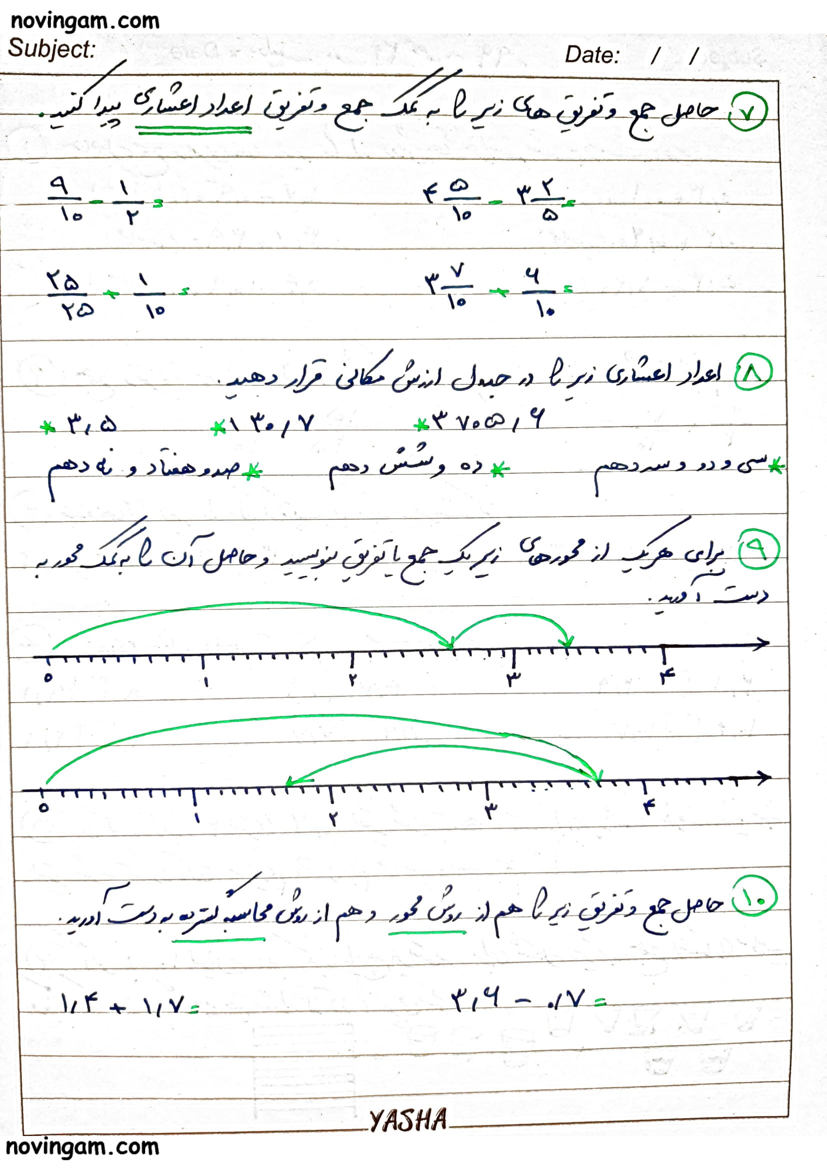 novingam.com
Subject: Date: / /
۷ حاصل جمع و تفریق های زیر را به کمک جمع و تفریق اعداد اعشاری پیدا کنید.
۹/۱۰ - ۱/۲ = ۴ ۵/۱۰ - ۳ ۲/۵ =
۲۵/۲۵ + ۱/۱۰ = ۳ ۷/۱۰ + ۶/۱۰ =
۸ اعداد اعشاری زیر را در جدول ارزش مکانی قرار دهید.
* ۳٫۵ * ۱۳۰٫۷ * ۳۷۰۵٫۶
* سی و دو و سه دهم * ده و شش دهم * صد و هفتاد و نه دهم
۹ برای هر یک از محورهای زیر یک جمع یا تفریق بنویسید و حاصل آن را به کمک محور به
دست آورید.
۰ ۱ ۲ ۳ ۴
۰ ۱ ۲ ۳ ۴
۱۰ حاصل جمع و تفریق زیر را هم از روش محور و هم از روش محاسبه گسترده به دست آورید.
۱٫۴ + ۱٫۷ = ۳٫۶ - ۰٫۷ =
YASHA
novingam.com